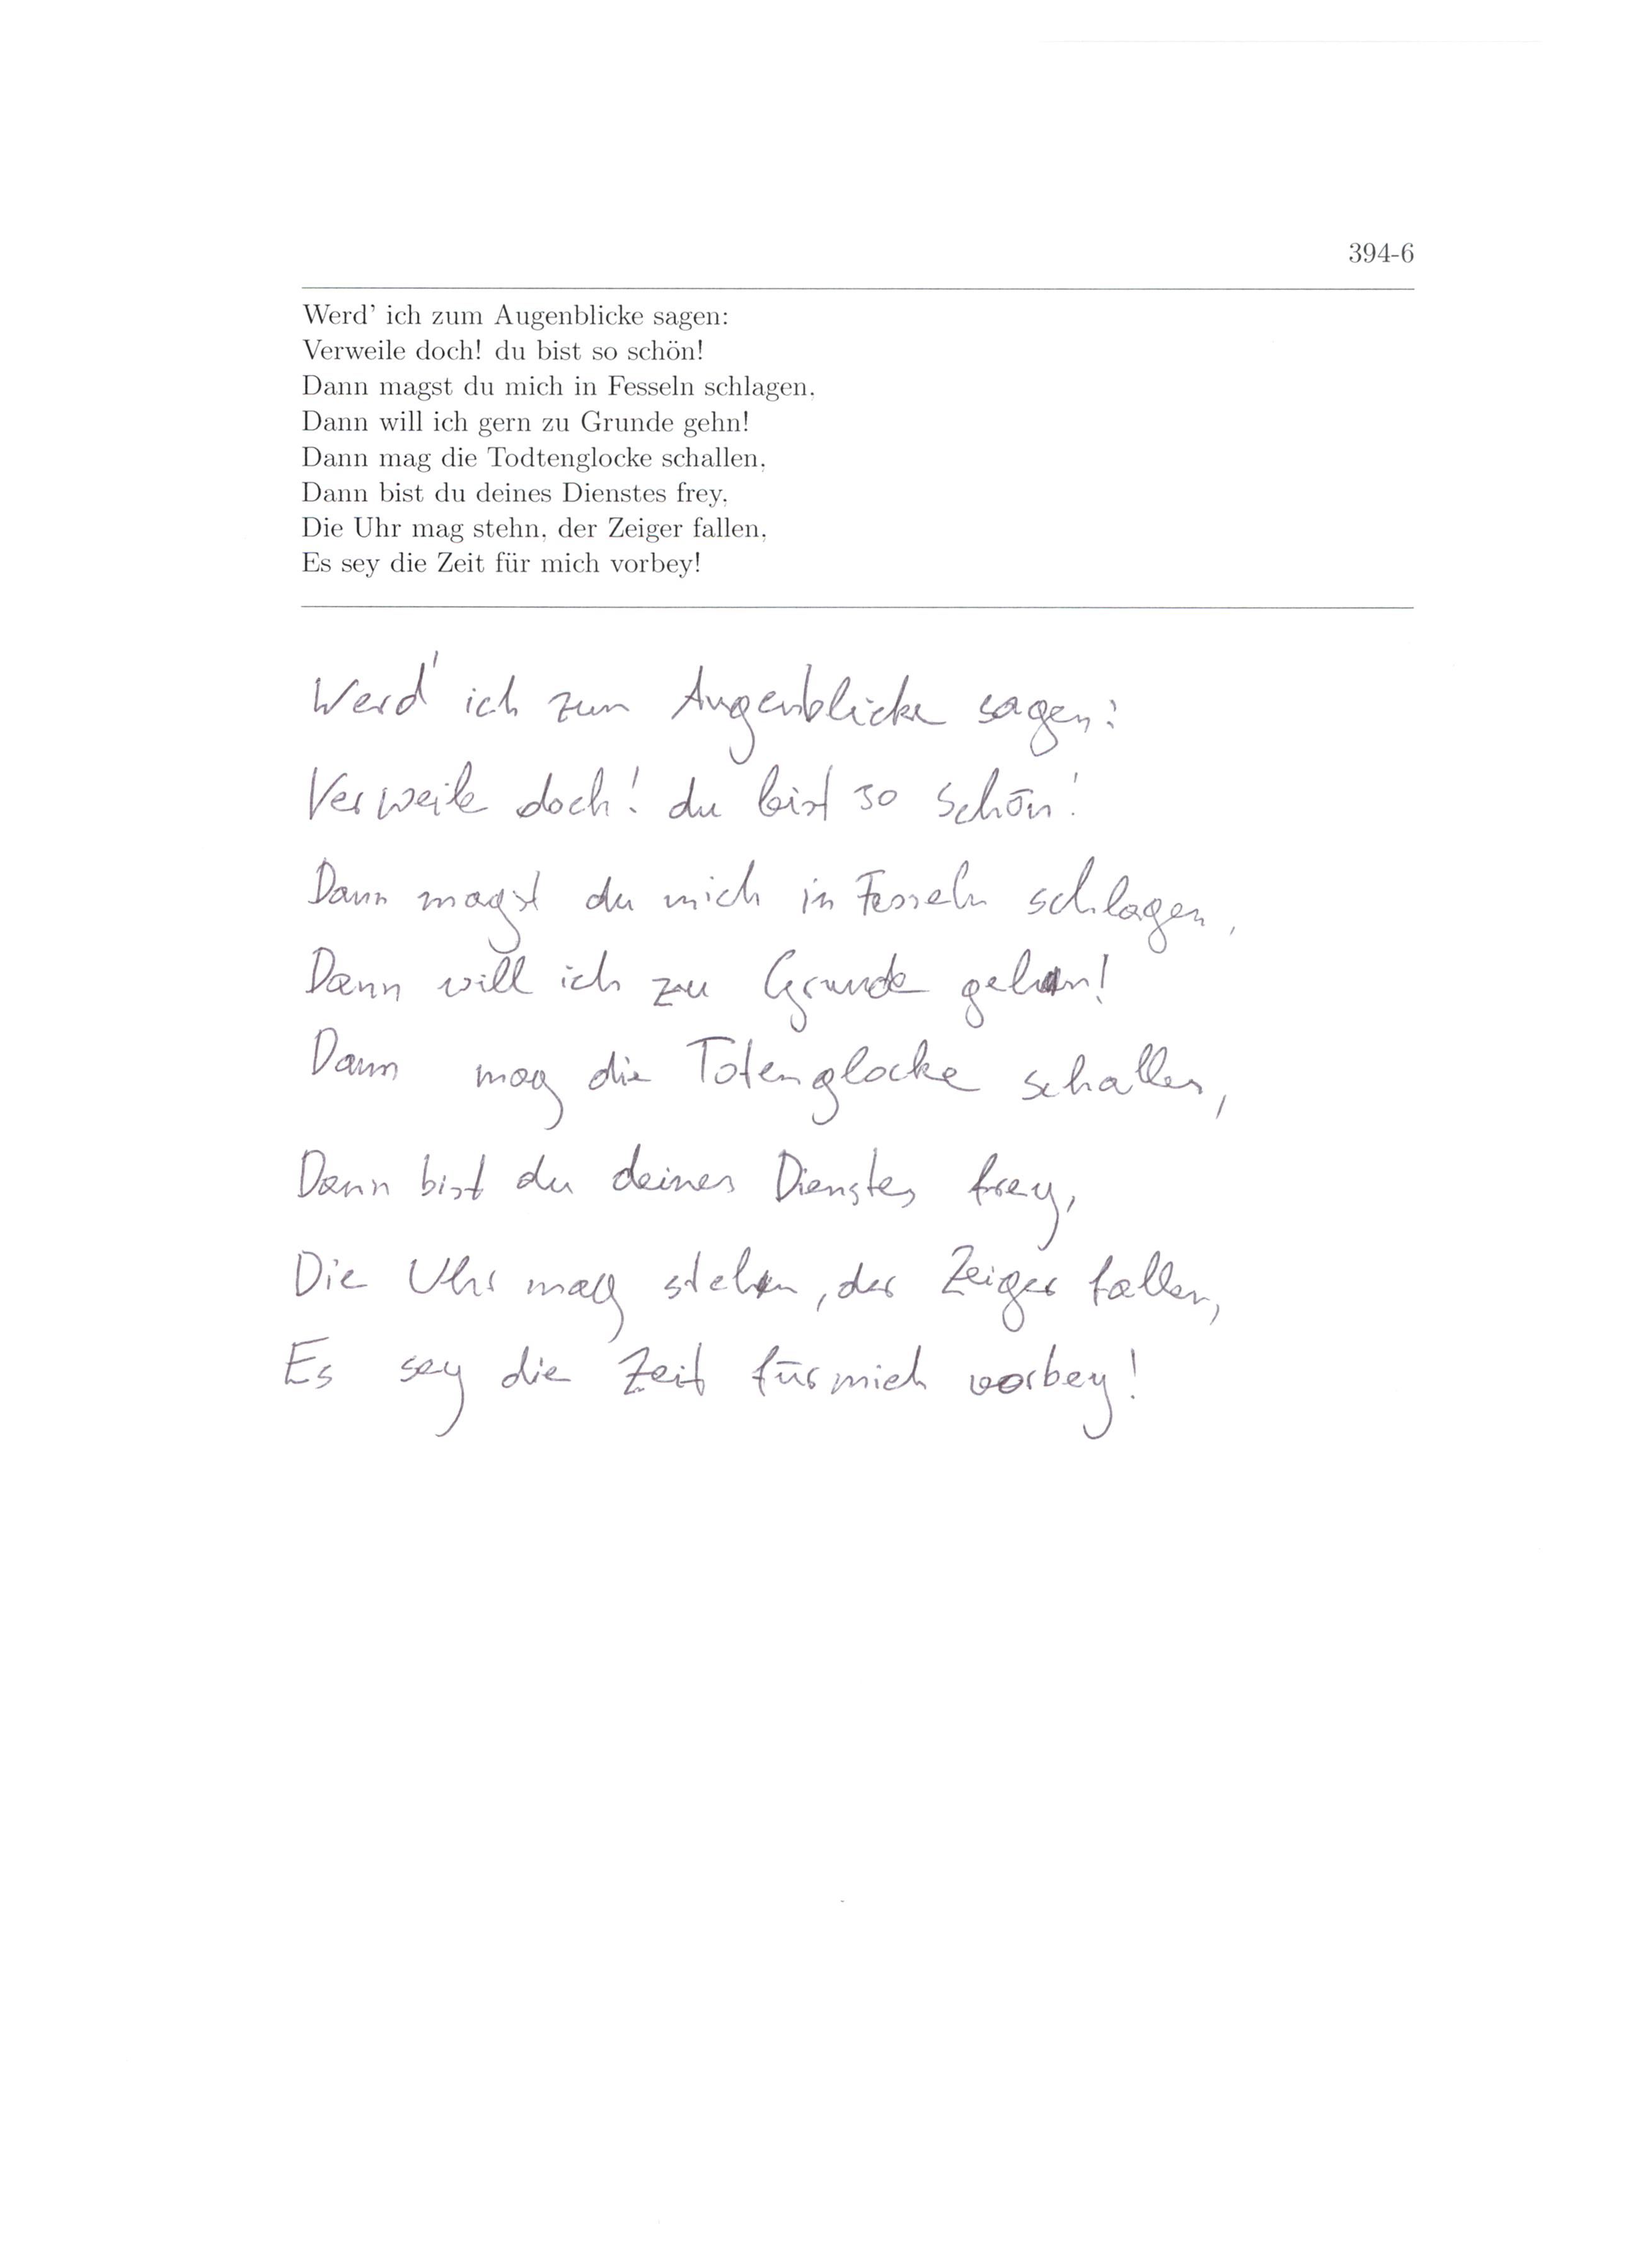 394-6
Werd' ich zum Augenblicke sagen:
Verweile doch! du bist so schön!
Dann magst du mich in Fesseln schlagen,
Dann will ich gern zu Grunde gehn!
Dann mag die Todtenglocke schallen,
Dann bist du deines Dienstes frey,
Die Uhr mag stehn, der Zeiger fallen,
Es sey die Zeit für mich vorbey!
Werd' ich zum Augenblicke sagen:
Verweile doch! du bist so schön!
Dann magst du mich in Fesseln schlagen,
Dann will ich zu Grunde gehn!
Dann mag die Totenglocke schallen,
Dann bist du deines Dienstes frey,
Die Uhr mag stehn, der Zeiger fallen,
Es sey die Zeit für mich vorbey!